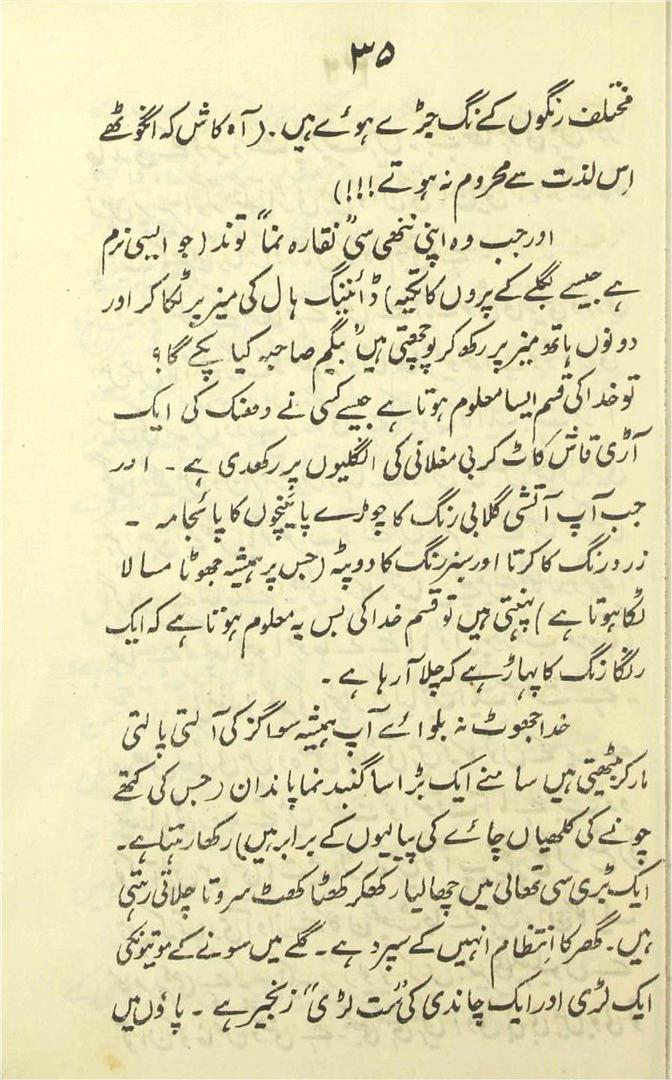 ۳۵
مختلف رنگوں کے نگ جڑے ہوئے ہیں۔ (آہ کاش کہ انگوٹھے
اِس لذت سے محروم نہ ہوتے!!!)
اور جب وہ اپنی ننھی سی "نقارہ نما" توند (جو ایسی نرم
ہے جیسے بگلے کے پروں کا تکیہ) ڈائننگ ہال کی میز پر ٹکا کر اور
دونوں ہاتھ میز پر رکھ کر پوچھتی ہیں "بیگم صاحبہ کیا پکے گا؟
تو خدا کی قسم ایسا معلوم ہوتا ہے جیسے کسی نے دھنک کی ایک
آڑی قاش کاٹ کر بی مغلانی کی انگلیوں پر رکھدی ہے۔ اور
جب آپ آتشی گلابی رنگ کا چوڑے پائینچوں کا پائجامہ۔
زرد رنگ کا کرتا اور سبز رنگ کا دوپٹہ (جس پر ہمیشہ جھوٹا مسالا
ٹکا ہوتا ہے) پہنتی ہیں تو قسم خدا کی بس یہ معلوم ہوتا ہے کہ ایک
رنگا رنگ کا پہاڑ ہے کہ چلا آ رہا ہے۔
خدا جھوٹ نہ بلوائے آپ ہمیشہ سوا گز کی آلتی پالتی
مار کر بیٹھتی ہیں سامنے ایک بڑا سا گنبد نما پاندان (جس کی کتھے
چونے کی کلھیاں چائے کی پیالیوں کے برابر ہیں) رکھا رہتا ہے۔
ایک بڑی سی تھالی میں چھالیا رکھکر کھٹا کھٹ سروتا چلاتی رہتی
ہیں۔ گھر کا انتظام انہیں کے سپرد ہے۔ گلے میں سونے کے موتیونکی
ایک لڑی اور ایک چاندی کی "ست لڑی" زنجیر ہے۔ پاؤں میں